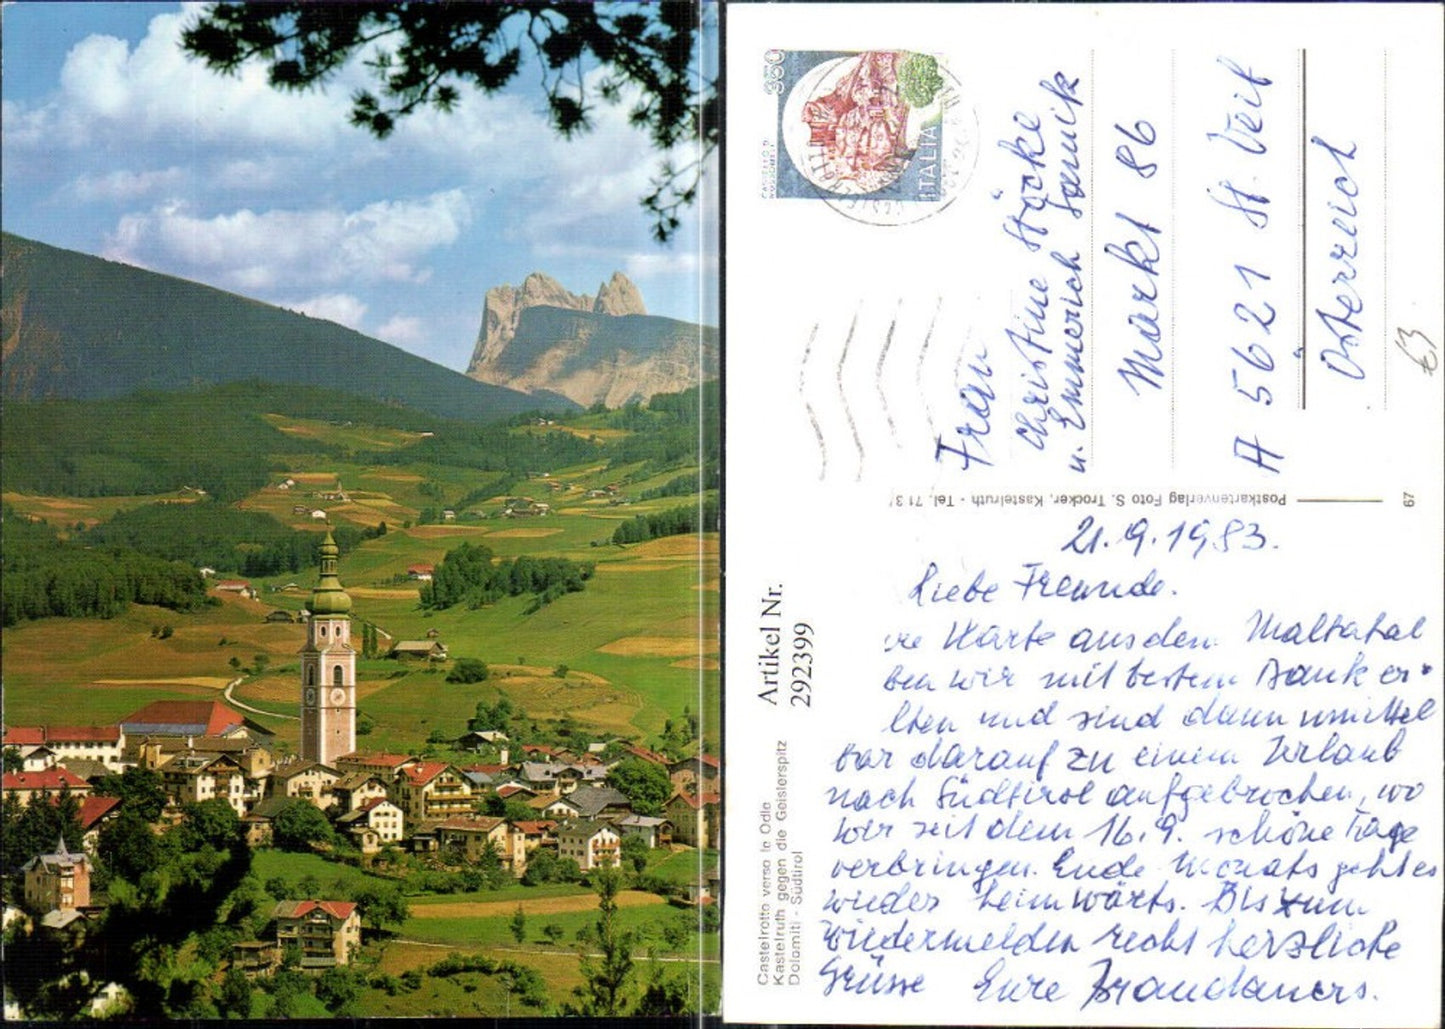 350
CASTELLO DI
ITALIA
Frau
Christine Stöcke
u. Emmerich Sarnik
Markt 86
A 5621 St. Veit
Österreich
€3
Postkartenverlag Foto S. Trocker, Kastelruth - Tel. 713
67
Artikel Nr.
292399
Castelrotto verso le Odle
Kastelruth gegen die Geisterspitz
Dolomiti - Südtirol
21.9.1983.
Liebe Freunde.
re Karte aus dem Maltatal
ben wir mit bestem Dank er-
lten und sind dann unmittel
bar darauf zu einem Urlaub
nach Südtirol aufgebrochen, wo
wir seit dem 16.9. schöne Tage
verbringen. Ende Monats geht es
wieder heimwärts. Bis zum
Wiedermelden recht herzliche
Grüsse Eure Brandauers.